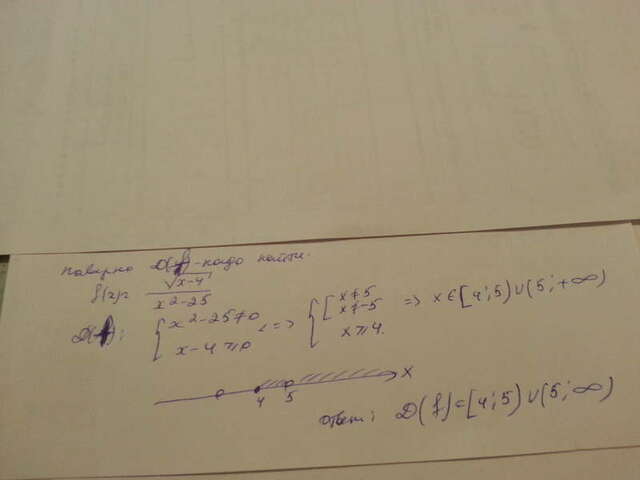 наверно D(f) - надо найти.
f(x)= √(x-4) / (x²-25)
D(f): { x²-25≠0 <=> { [ x≠5 => x∈[4;5)∪(5;+∞)
x-4≥0 x≠-5
x≥4.
4 5 x
ответ: D(f)=[4;5)∪(5;∞)